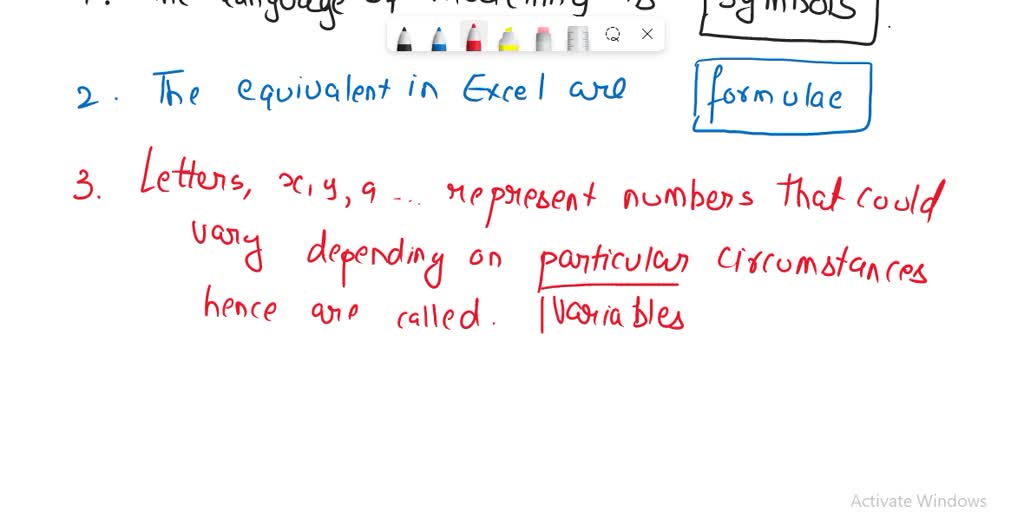 1. The language of modelling is symbols .
2. The equivalent in Excel are formulae
3. Letters, x, y, a ... represent numbers that could
vary depending on particular circumstances
hence are called. variables
Activate Windows